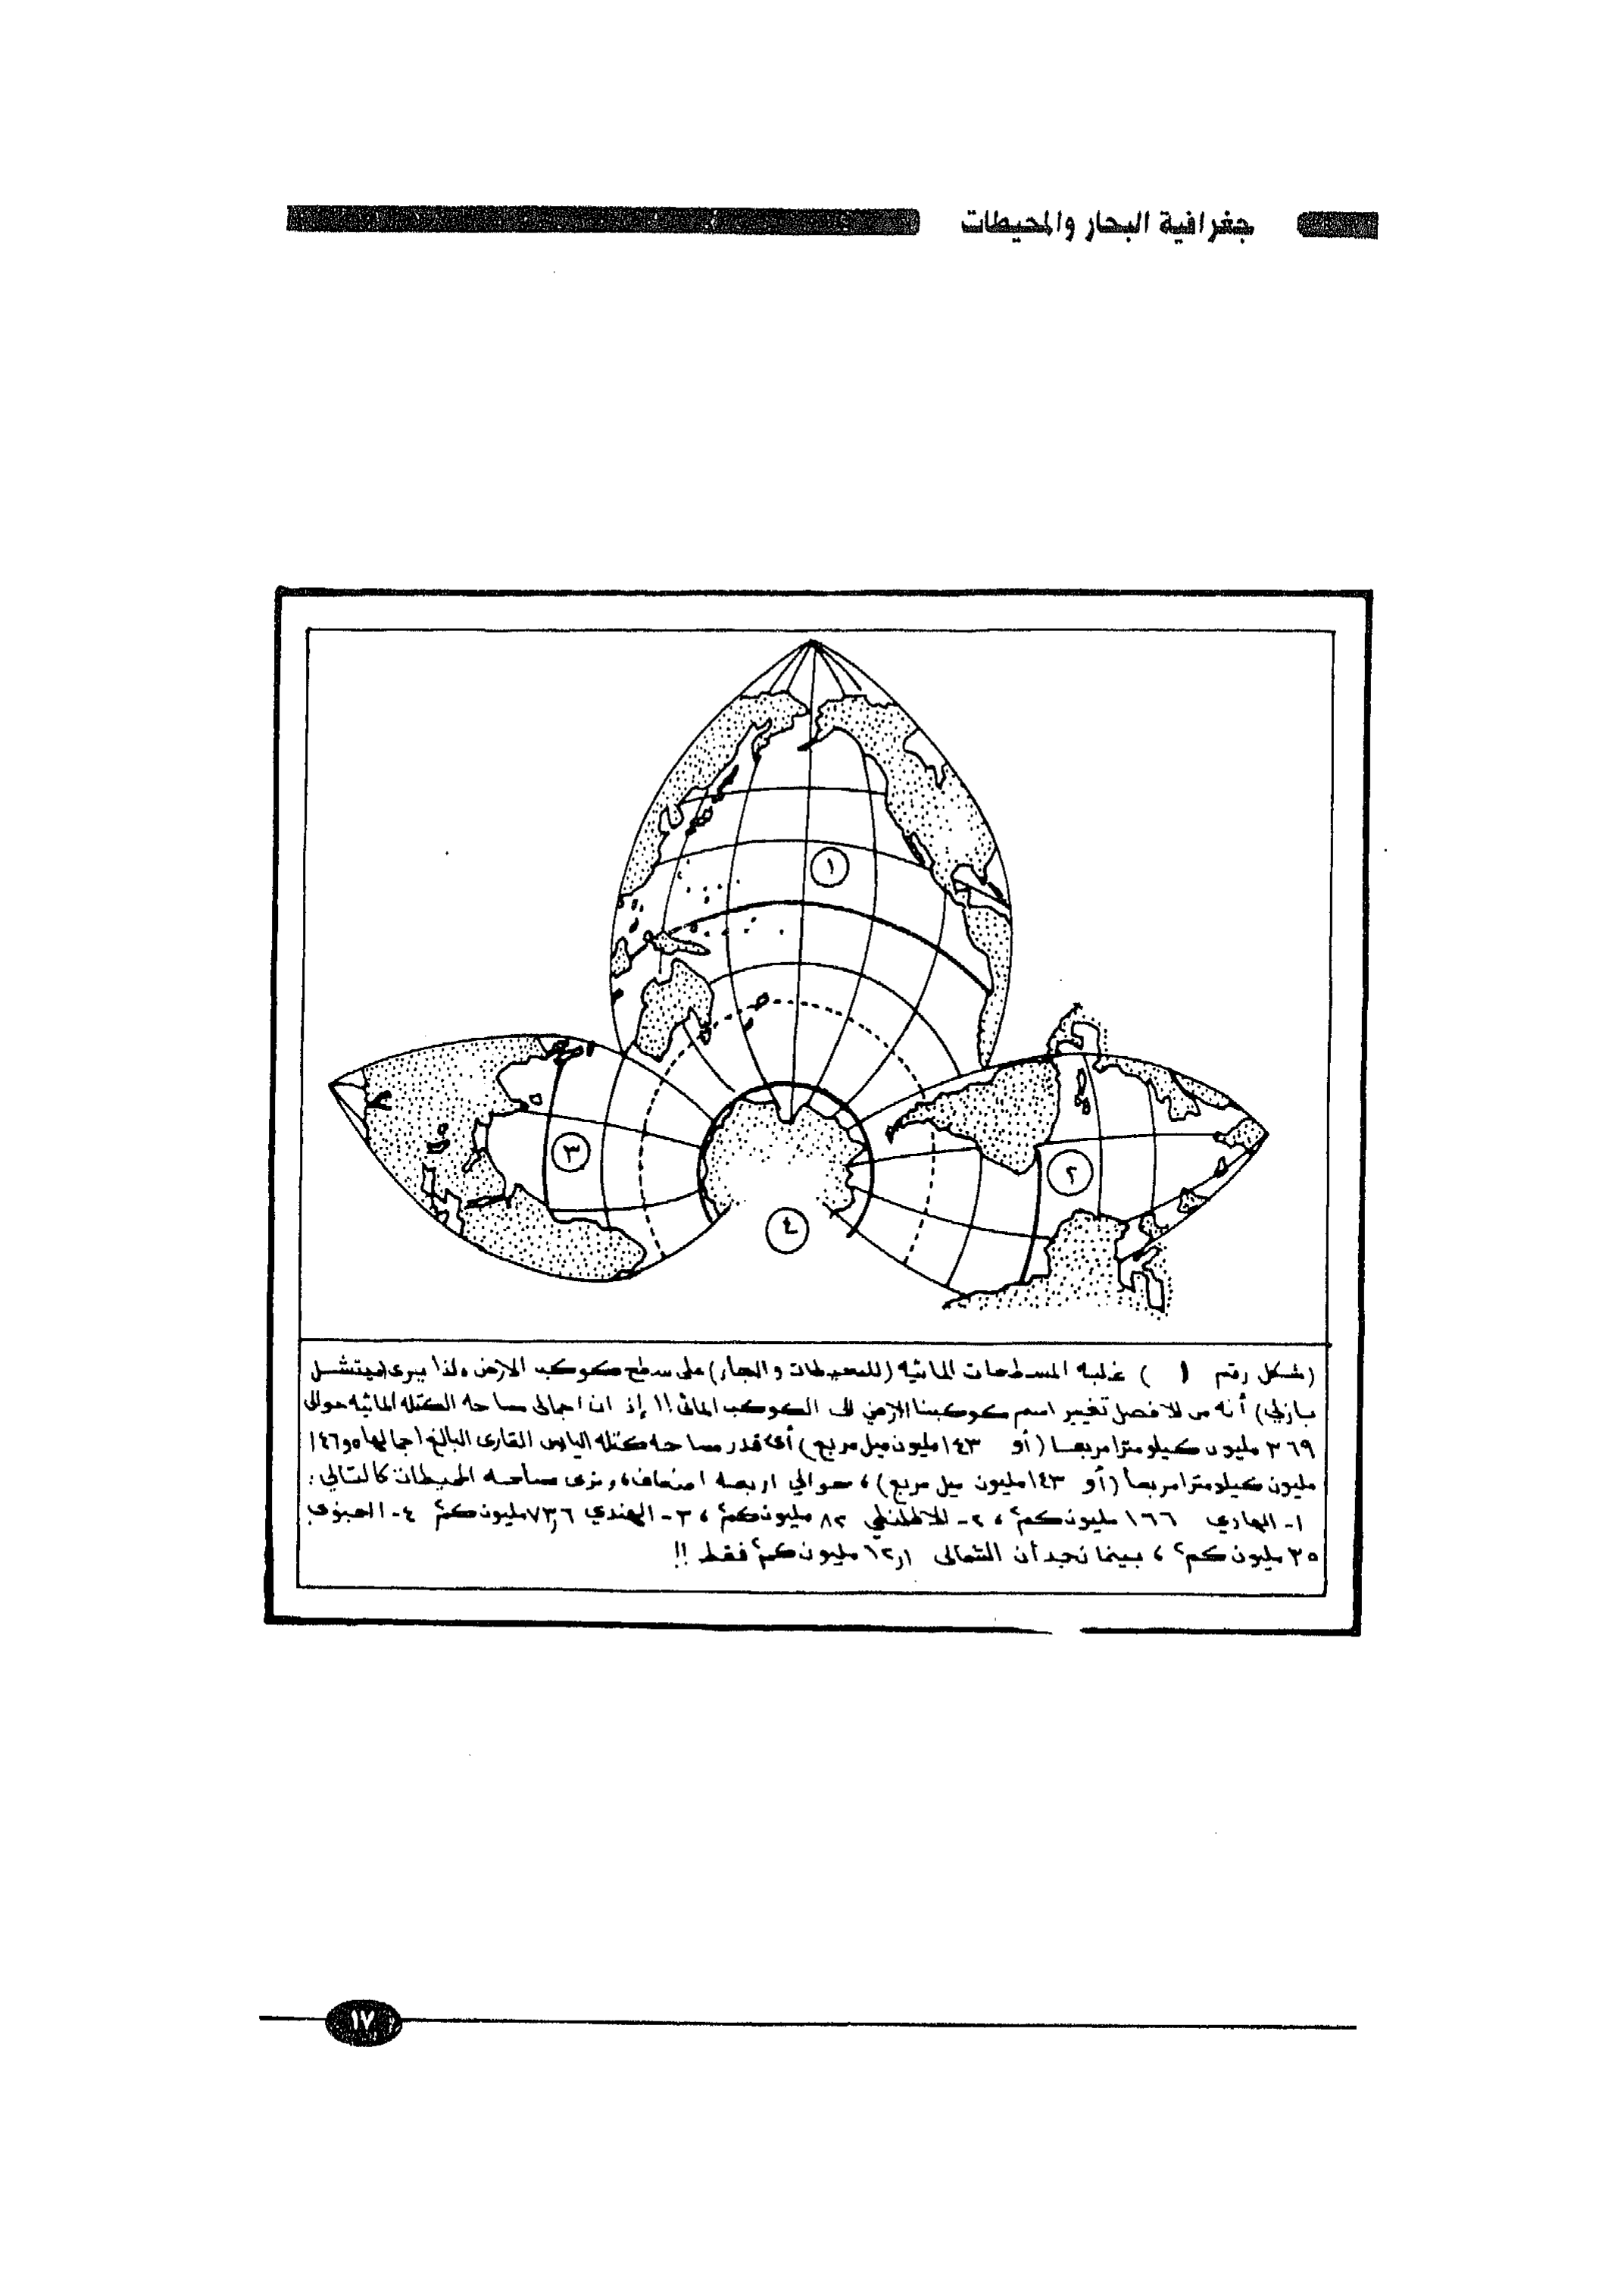 جغرافية البحار والمحيطات
١
٢
٣
٤
(شكل رقم ١ ) غلبة المسطحات المائية (للمحيطات والبحار) على سطح كوكب الارض ولذا يرى (ميتشل
بازلي) أنه من الافضل تغيير اسم كوكبنا الارضي الى الكوكب المائى!! إذ ان اجمالى مساحة الكتلة المائية حوالى
٣٦٩ مليون كيلومترا مربعا (أو ١٤٣ مليون ميل مربع) أى قدر مساحة كتلة اليابس القارى البالغ اجمالها ١٤٦٫٥
مليون كيلومترا مربعاً (أو ١٤٣ مليون ميل مربع) ، حوالي اربعة اضعاف، ونرى مساحة المحيطات كالتالي:
١- الهادي ١٦٦ مليون كم٢ ، ٢- الاطلنطي ٨٢ مليون كم٢ ، ٣- الهندي ٧٣٫٦ مليون كم٢ ٤- الجنوبى
٣٥ مليون كم٢ ، بينما نجد أن الشمالى ١٢٫١ مليون كم٢ فقط !!
١٧